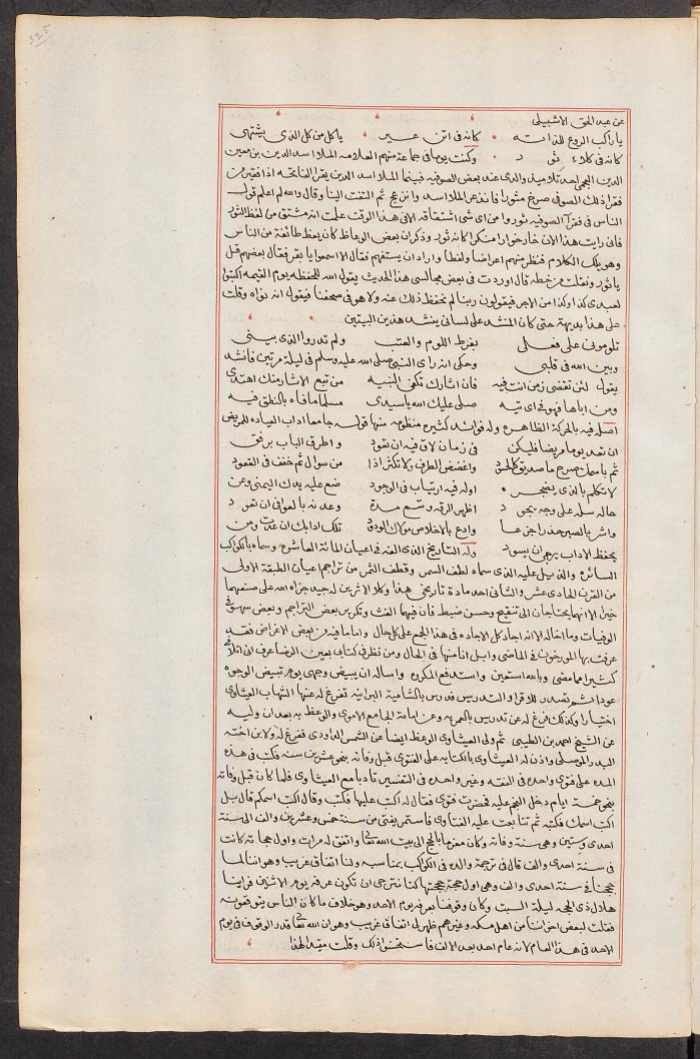 325
عن عبد الحق الاشبيلي
يا راكب الروع للذاته كانه في اتن عير يأكل من كل الذي يشتهى
كانه في كلاء ثور د وكنت يوما في جماعة منهم العلامه الملا اسد الدين بن معين
الدين العجمى احد تلاميذ والدى عند بعض الصوفيه فبينما الملا اسد الدين يقرا الفاتحه اذا فقير من
فقرا ذلك الصوفى صرخ مثورا فانذعر الملا اسد وانزعج ثم التفت الينا وقال والله لم اعلم قول
الناس في فقرآ الصوفيه ثوروا من اى شى اشتقاقه الا في هذا الوقت علمت انه مشتق من لفظ الثور
فانى رايت هذا الان خار خوارا منكرا كانه ثور وذكر ان بعض الوعاظ كان يعظ طائفة من الناس
وهو يلك الكلام فنظر منهم اعراضا ولغطا واراد ان يستفهم فقال الا اسمعوا يا بقر فقال بعضهم قل
يا ثور ونقلت من خطه قال اوردت في بعض مجالسى هذا الحديث يقول الله للحفظه يوم القيمه اكتبوا
لعبدى كذا وكذا من الاجر فيقولون ربنا لم نحفظ ذلك عنه ولا هو في صحفنا فيقول انه نواه وقلت
على هذا بديهة حتى كان المنشد على لسانى ينشد هذين البيتين
تلومونى على فعلى بفرط اللوم والعتب ولم تدروا الذى بينى
وبين الله في قلبى وحكى انه راى النبى صلى الله عليه وسلم في ليلة مرتين فانشد
يقول لئن تقضى زمن انت فيه فان اثارك تكفى النبيه من تبع الاثار منك اهتدى
ومن اباها فهو في اى تيه صلى عليك الله يا سيدى مسلما ما فاه بالنطق فيه
اصله فيه بالحركة الظاهره وله فوائد كثيره منظومه منها قوله جامعا اداب العياده للمريض
ان تعد يوما مريضا فليكن في زمان لاق فيه ان تعود واطرق الباب برفق
ثم باسمك صرح ما صديق كالحجود واغضض الطرف ولا تكثر اذا من سوال ثم خفف في القعود
لا تكلم بالذى يضجره اوله فيه ارتياب في الوجود ضع عليه يدك اليمنى وعن
حاله سله على وجه يجود اظهر الرقه وسع مدة وعدنه بالعوافى ان تعود
واشر بالصبر حذرا جزعا وادع بالاخلاص مولاك الودود تلك ادابك ان عدت ومن
يحفظ الاداب يرجى ان يسود وله التاريخ الذى الفه في اعيان المائة العاشره وسماه بالكواكب
السائره والذيل عليه الذى سماه لطف السمر وقطف الثمر من تراجم اعيان الطبقة الاولى
من القرن الحادى عشر والثانى احد مادة تاريخى هذا وكلا الاثرين له جيد جزاه الله على صنعهما
خيرا الا انهما يحتاجان الى تنقيح وحسن ضبط فان فيهما الغث وتكرير بعض التراجم وبعض سهو في
الوفيات وما اخاله الا انه اجاد كل الاجاده في هذا الجمع على كل حال واما ما فيه من بعض الاغراض فقد
عرفت بها المورخون في الماضى وابيك انا منها في الحال ومن نظر في كتابى بعين الرضا عرف انى اتلا
كثيرا مما مضى وبالله استعين واستدفع المكروه واساله ان يبيض وجهى يوم تبيض الوجوه
عودا ثم تصدر للاقرا والتدريس فدرس بالشامية البرانيه تفرغ له عنها الشهاب العيثاوى
اختيارا وكذلك فرغ له عن تدريس بالعمريه وعن امامة الجامع الاموى والوعظ به بعد ان وليه
عن الشيخ احمد بن الطيبى ثم ولى العيثاوى الوعظ ايضا عن الشمس الداودى ففرغ له ولابن اخته
البدر الموصلى واذن له العيثاوى بالكتابه على الفتوى قبل وفاته بنحو عشرين سنه فكتب في هذه
المده على فتوى واحده في الفقه وغير واحده في التفسير تادبا مع العيثاوى فلما كان قبل وفاته
بنحو خمسة ايام دخل النجم عليه فحضرت فتوى فقال له اكتب عليها فكتب وقال اكتب اسمكم قال بل
اكتب اسمك فكتبه ثم تتابعت عليه الفتاوى فاستمر يفتى من سنة خمس وعشرين والف الى سنة
احدى وستين وهى سنة وفاته وكان مغرما بالحج الى بيت الله تعا واتفق له مرات واول حجاته كانت
في سنة احدى والف قال في ترجمة والده في الكواكب بمناسبه ولنا اتفاق غريب وهو اننا لما
حججنا في سنة احدى والف وهى اول حجة حججتها كنا نترجى ان تكون عرفه يوم الاثنين فراينا
هلال ذى الحجه ليلة السبت وكان وقوفنا بعرفه يوم الاحد وهو خلاف ما كان الناس يتوقعونه
فقلت لبعض اخواننا من اهل مكه وغيرهم ظهر لى اتفاق غريب وهو ان الله تعا قدر الوقوف في يوم
الاحد في هذا العام لانه عام احد بعد الالف فاستحسنوا ذلك وقلت مقيدا لهذا